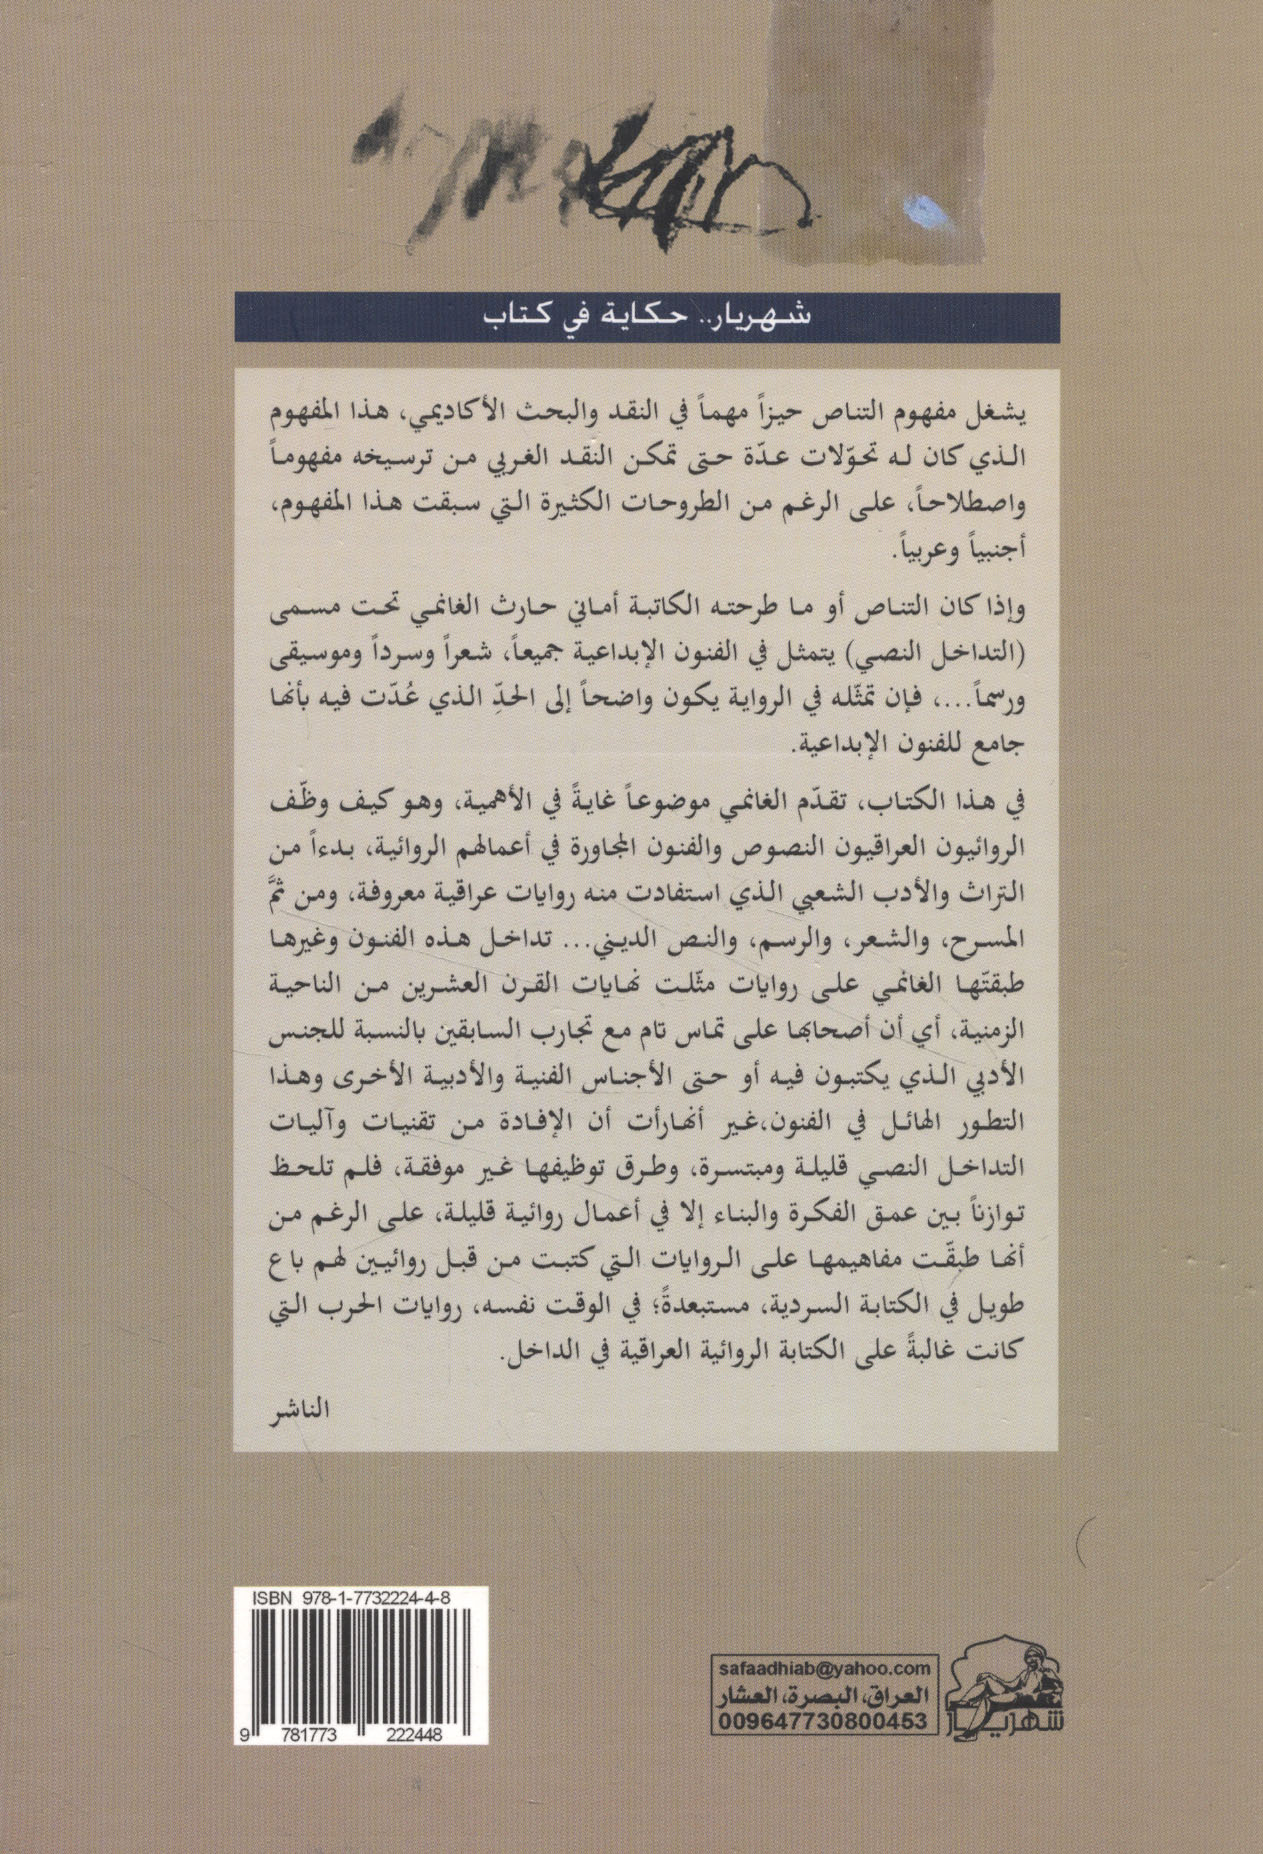 شهريار.. حكاية في كتاب
يشغل مفهوم التناص حيزاً مهماً في النقد والبحث الأكاديمي، هذا المفهوم
الذي كان له تحوّلات عدّة حتى تمكن النقد الغربي من ترسيخه مفهوماً
واصطلاحاً، على الرغم من الطروحات الكثيرة التي سبقت هذا المفهوم،
أجنبياً وعربياً.
وإذا كان التناص أو ما طرحته الكاتبة أماني حارث الغانمي تحت مسمى
(التداخل النصي) يتمثل في الفنون الإبداعية جميعاً، شعراً وسرداً وموسيقى
ورسماً...، فإن تمثّله في الرواية يكون واضحاً إلى الحدِّ الذي عُدّت فيه بأنها
جامع للفنون الإبداعية.
في هذا الكتاب، تقدّم الغانمي موضوعاً غايةً في الأهمية، وهو كيف وظّف
الروائيون العراقيون النصوص والفنون المجاورة في أعمالهم الروائية، بدءاً من
التراث والأدب الشعبي الذي استفادت منه روايات عراقية معروفة، ومن ثمَّ
المسرح، والشعر، والرسم، والنص الديني... تداخل هذه الفنون وغيرها
طبقتّها الغانمي على روايات مثّلت نهايات القرن العشرين من الناحية
الزمنية، أي أن أصحابها على تماس تام مع تجارب السابقين بالنسبة للجنس
الأدبي الذي يكتبون فيه أو حتى الأجناس الفنية والأدبية الأخرى وهذا
التطور الهائل في الفنون،غير أنهارأت أن الإفادة من تقنيات وآليات
التداخل النصي قليلة ومبتسرة، وطرق توظيفها غير موفقة، فلم تلحظ
توازناً بين عمق الفكرة والبناء إلا في أعمال روائية قليلة، على الرغم من
أنها طبقّت مفاهيمها على الروايات التي كتبت من قبل روائيين لهم باع
طويل في الكتابة السردية، مستبعدةً؛ في الوقت نفسه، روايات الحرب التي
كانت غالبةً على الكتابة الروائية العراقية في الداخل.
الناشر
ISBN 978-1-7732224-4-8
9 781773 222448
safaadhiab@yahoo.com
العراق، البصرة، العشار
009647730800453
شهريار